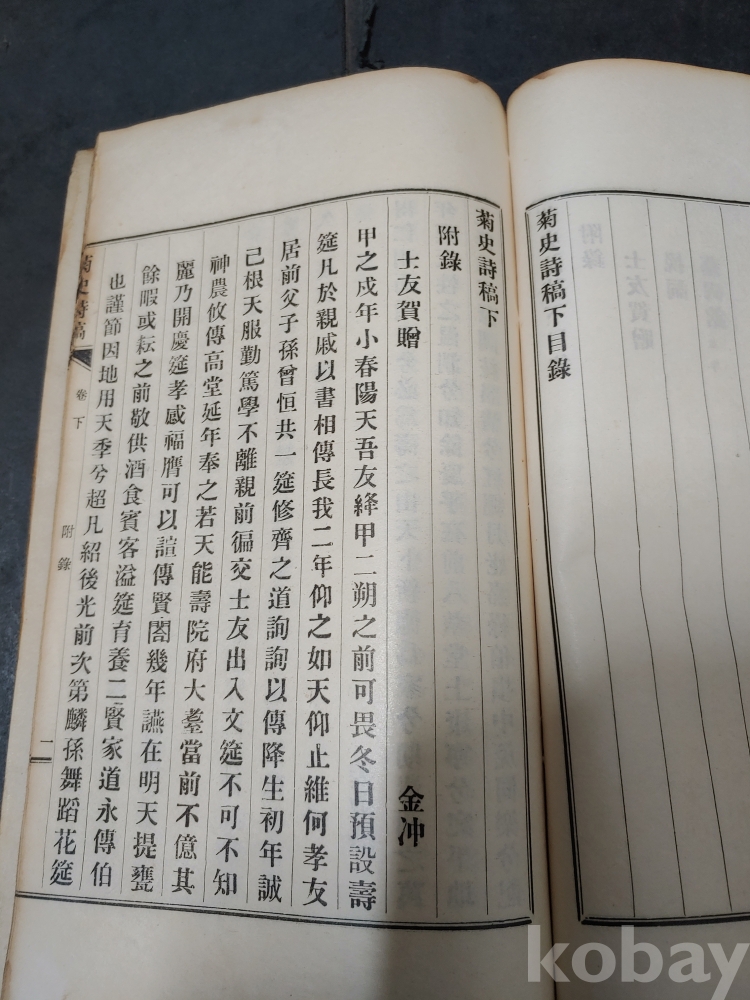 菊史詩稿下目錄
菊史詩稿下
附錄
士友賀贈 金冲
甲之戌年小春陽天吾友絳甲二朔之前可畏冬日預設壽
筵凡於親戚以書相傳長我二年仰之如天仰止維何孝友
居前父子孫曾恒共一筵修齊之道詢詢以傳降生初年誠
己根天服勤篤學不離親前徧交士友出入文筵不可不知
神農攸傳高堂延年奉之若天能壽院府大耋當前不億其
麗乃開慶筵孝感福膺可以諠傳賢閤幾年讌在明天提甕
餘暇或耘之前敬供酒食賓客溢筵育養二賢家道永傳伯
也謹節因地用天季兮超凡紹後光前次第麟孫舞蹈花筵
菊史詩稿
卷下
附錄
二
kobay